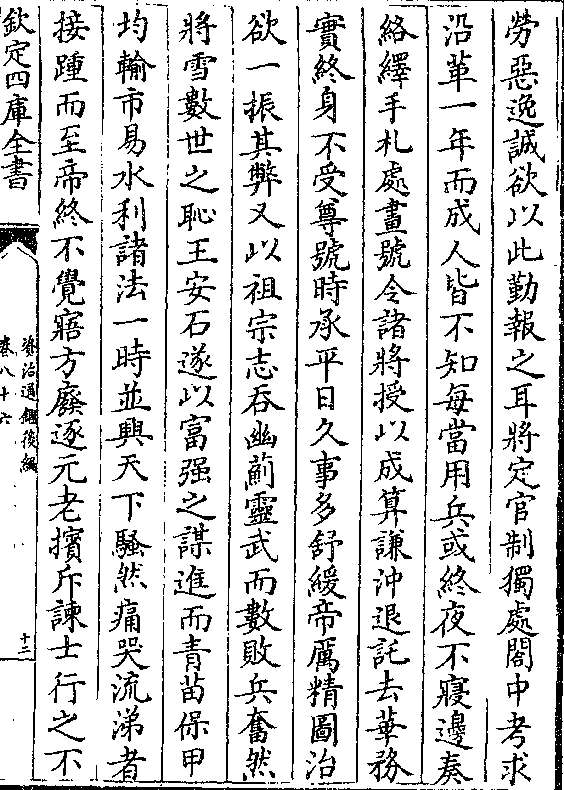 勞惡逸誠欲以此勤報之耳將定官制獨處閣中考求
沿革一年而成人皆不知每當用兵或終夜不寢邊奏
絡繹手札處畫號令諸將授以成算謙沖退託去華務
實終身不受尊號時承平日久事多舒緩帝厲精圖治
欲一振其弊又以祖宗志吞幽薊靈武而數敗兵奮然
將雪數世之恥王安石遂以富强之謀進而青苗保甲
均輸市易水利諸法一時並興天下騷然痛哭流涕者
接踵而至帝終不覺寤方廢逐元老擯斥諫士行之不
欽定四庫全書
資治通鑑後編
卷八十六
十二